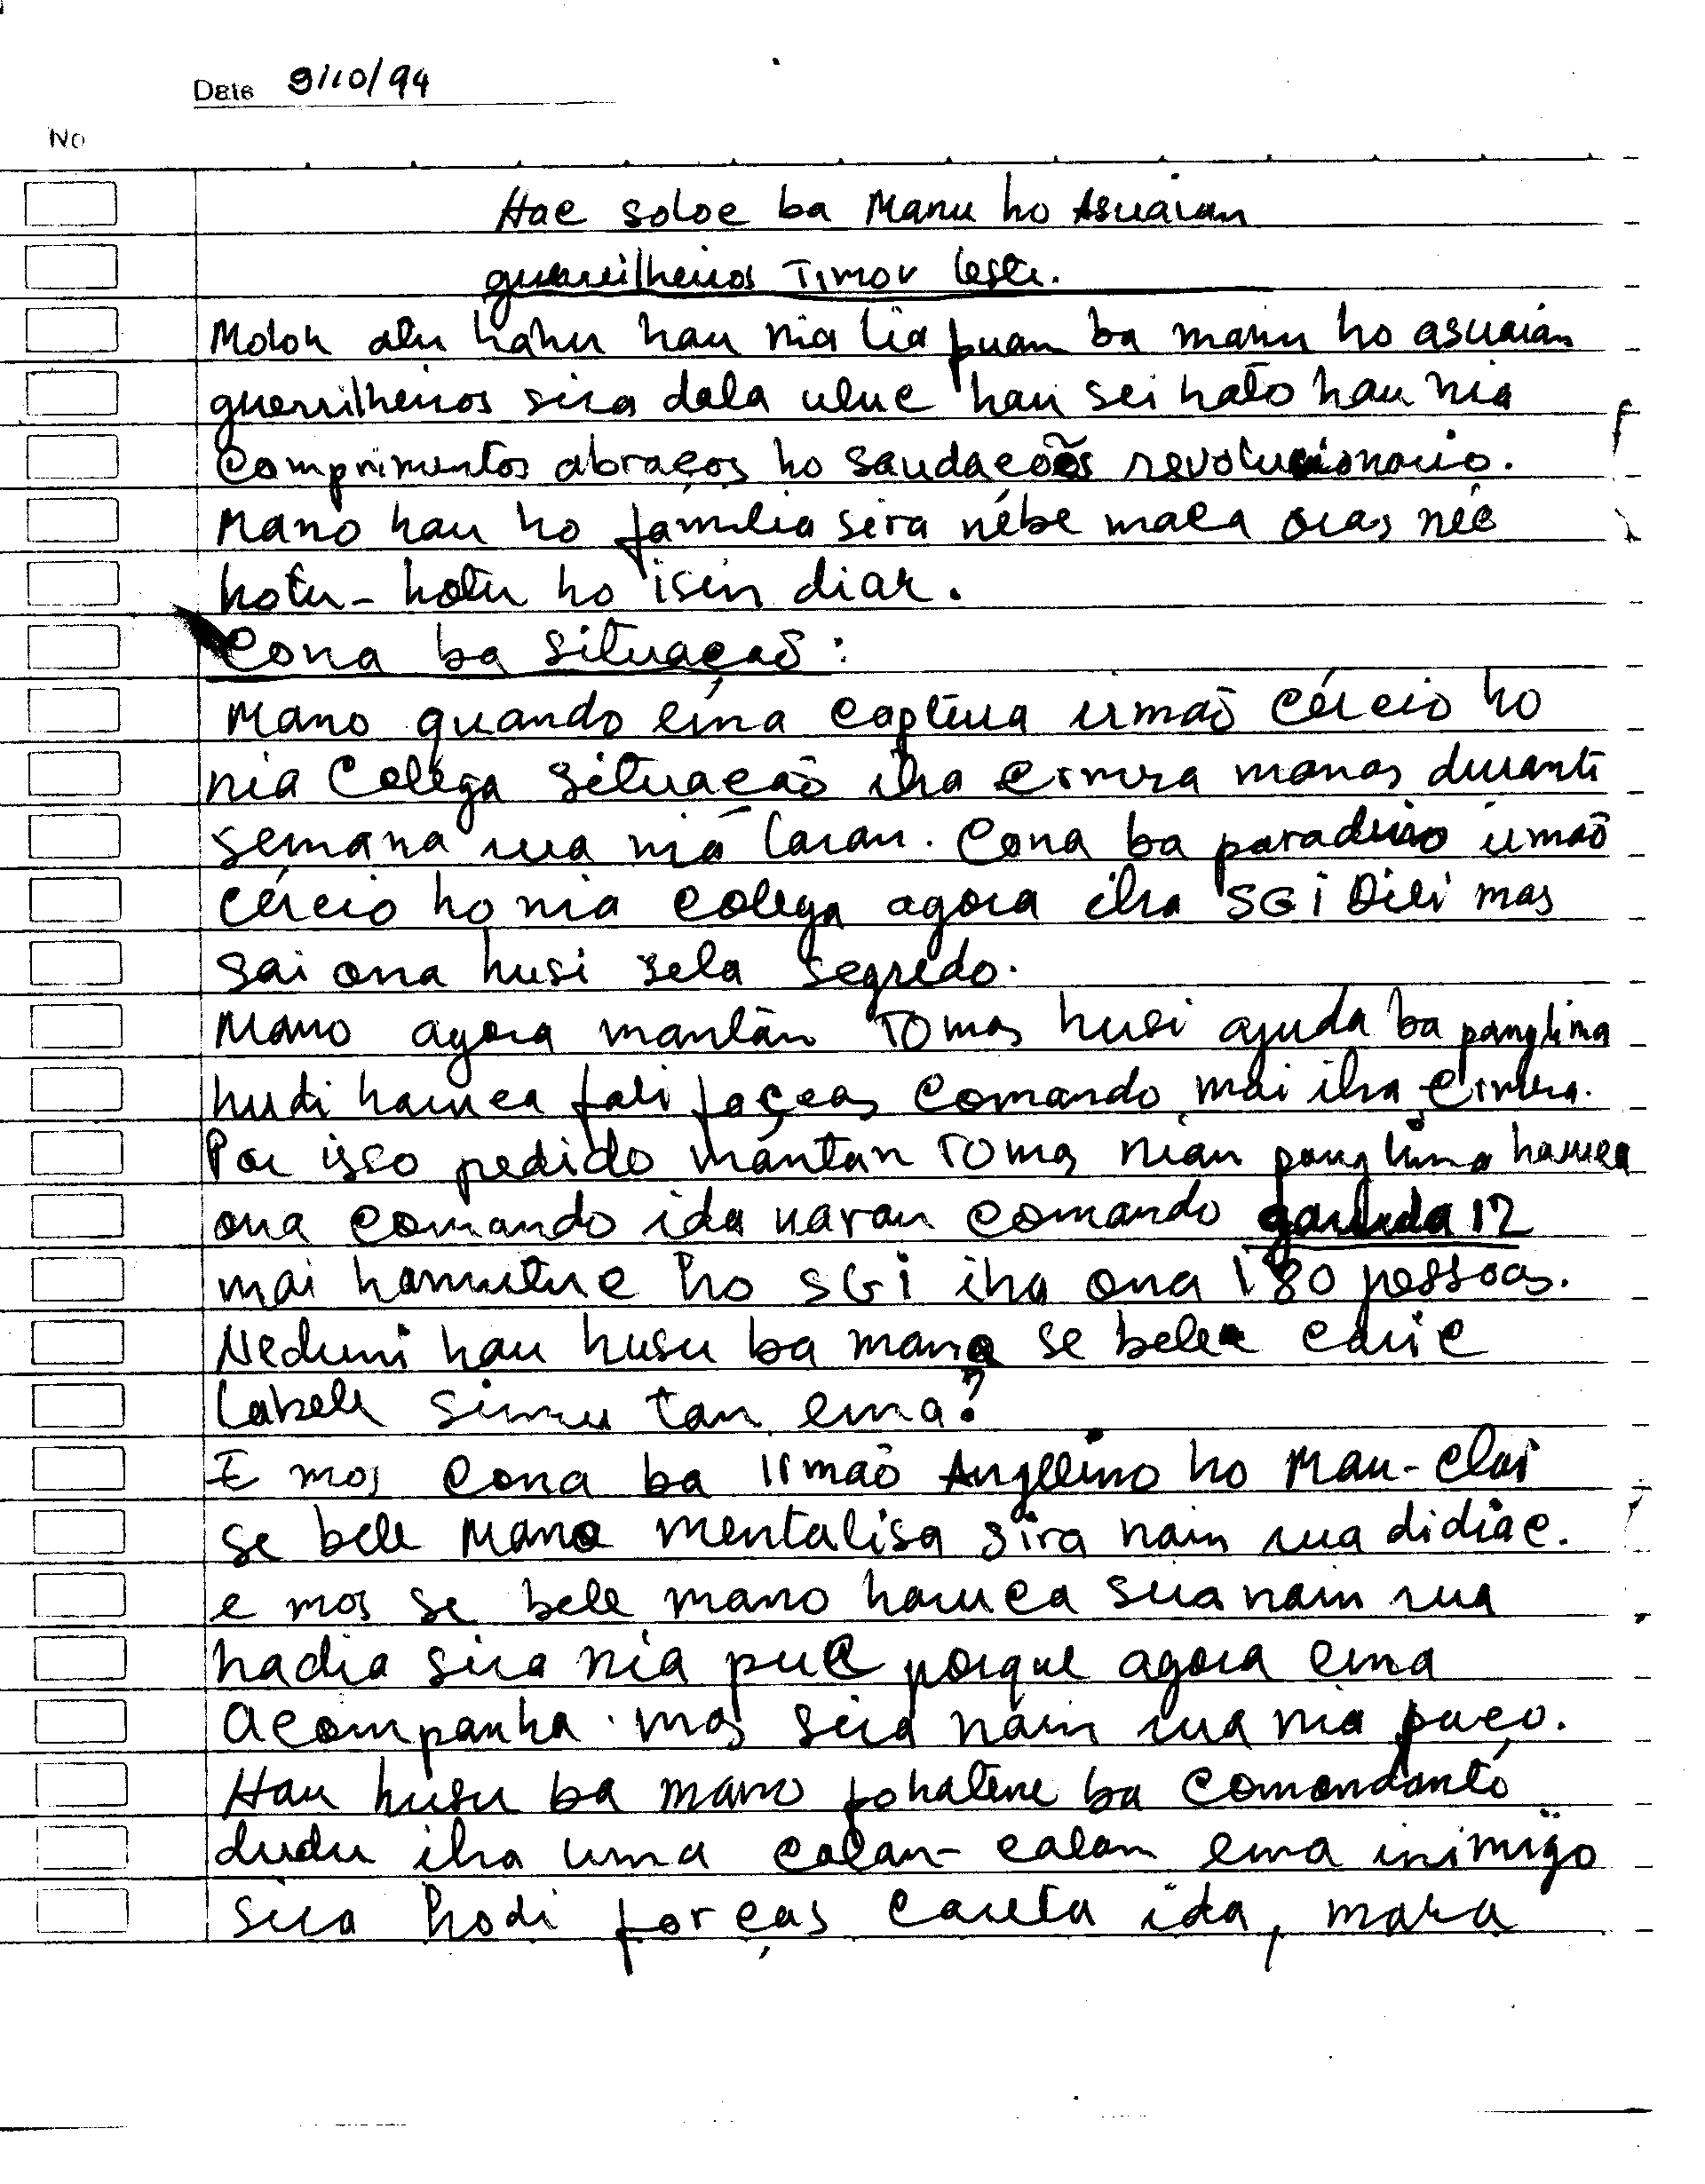 Date 9/10/94
No
Hac soloc ba Manu ho Asuaian
guerrilheiros Timor leste.
Moloh atu hahu hau nia lia fuan ba manu ho asuaian
guerrilheiros sira dala uluc hau sei hato hau nia
comprimentos abraços ho saudacões revolucionario.
Mano hau ho família sira nébe maca oras néé
hotu-hotu ho isin diac.
Cona ba situaçaõ:
Mano quando ema captura irmaõ Cércio ho
nia Colega situaçaõ iha Ermera manas durante
semana rua nia laran. Cona ba paradeiro irmaõ
Cércio ho nia colega agora iha SGI Dili mas
sai ona husi sela segredo.
Mano agora mantan Tomas husi ajuda ba panglima
hudi haruca fali foças Comando mai iha Ermera.
Por isso pedido mantan Tomas nian panglima haruca
ona comando ida naran comando garuda 12
mai hamutuc ho SGI iha ona 180 pessoas.
Neduni hau husu ba mano se bele caric
labele simu tan ema?
E mos cona ba Irmaõ Angelino ho Mau-Clai
se bele Mano mentalisa sira nain rua didiac.
e mos se bele mano haruca sira nain rua
hadia sira nia puc porque agora ema
acompanha mos sira nain rua nia puço.
Hau husu ba mano fohatene ba Comandante
dudu iha uma calan-calan ema inimigo
sira hodi forças careta ida, mara